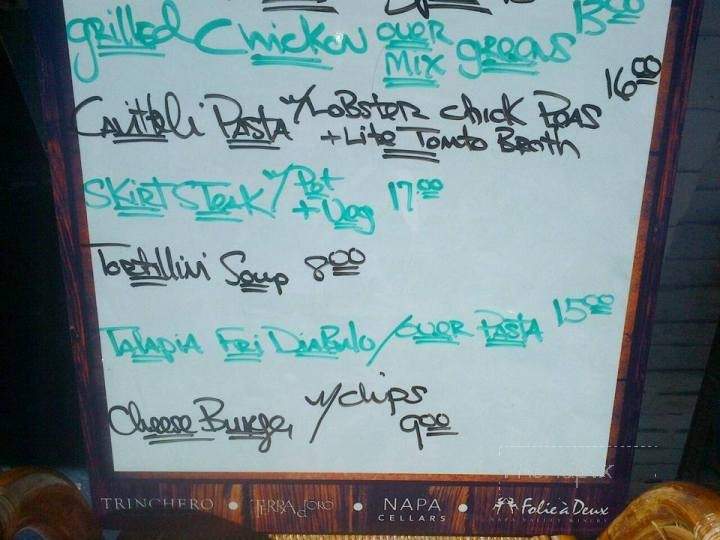 grilled Chicken over greens 13.00
Mix
Cavitteli Pasta w/ Lobster Chick Peas 16.00
+ Lite Tomto Broth
Skirt Steak w/ Pot 17.00
+ Veg
Tortillini Soup 8.00
Talapia Fri Diabulo / over Pasta 15.00
Cheese Burger w/ chips
9.00
TRINCHERO • TERRA D'ORO • NAPA CELLARS • Folie à Deux
NAPA VALLEY WINERY